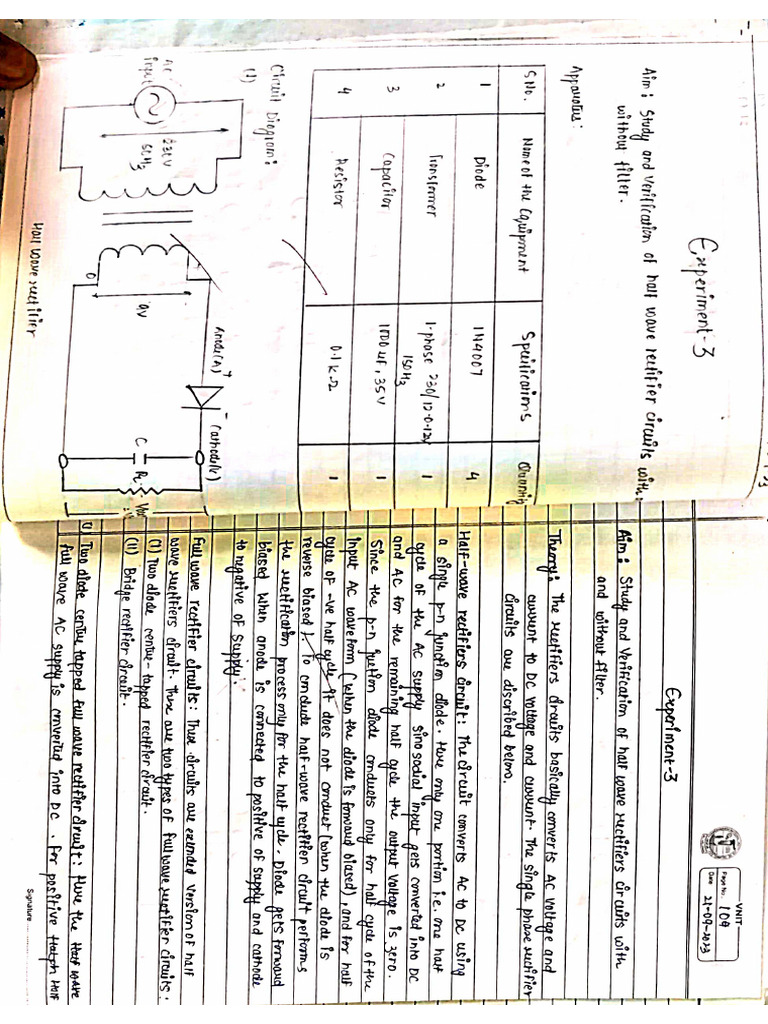 Experiment-3
Aim: Study and Verification of half wave rectifier circuits with
without filter.
Apparatus:
S.No. Name of the Equipment Specifications Quantity
1 Diode 1N4007 4
2 Transformer 1-phase 230/12-0-12V 1
150Hz
3 Capacitor 1000uF, 35V 1
4 Resistor 0.1k 1
Circuit Diagram:
(1)
AC
input
230V
50Hz
9V
0
Anode(A) +
- Cathode(k)
C
RL
Half wave rectifier
VNIT
Page No. 109
Date 21-09-2023
Experiment-3
Aim: Study and Verification of half wave rectifiers circuits with
and without filter.
Theory: The rectifiers circuits basically converts AC voltage and
current to DC voltage and current. The single phase rectifier
circuits are discribed below.
Half-wave rectifiers circuit: The circuit converts AC to DC using
a single p-n junction diode. Here only one portion i.e. one half
cycle of the AC supply sinosodial input gets converted into DC
and AC for the remaining half cycle the output voltage is zero.
Since the p-n juction diode conducts only for half cycle of the
input AC waveform (when the diode is forward biased), and for half
cycle of -ve half cycle it does not conduct (when the diode is
reverse biased). To conclude half-wave rectifier circuit performs
the rectification process only for the half cycle. Diode gets forward
biased when anode is connected to positive of supply and cathode
to negative of supply.
Full wave rectifier circuits: These circuits are extended version of half
wave rectifiers circuit. There are two types of full wave rectifier circuits.
(I) Two diode centre-tapped rectifier circuit.
(II) Bridge rectifier circuit.
(I) Two diode centre tapped full wave rectifier circuit: Here the Half wave
full wave AC supply is converted into DC. For positive Halph Half
Signature